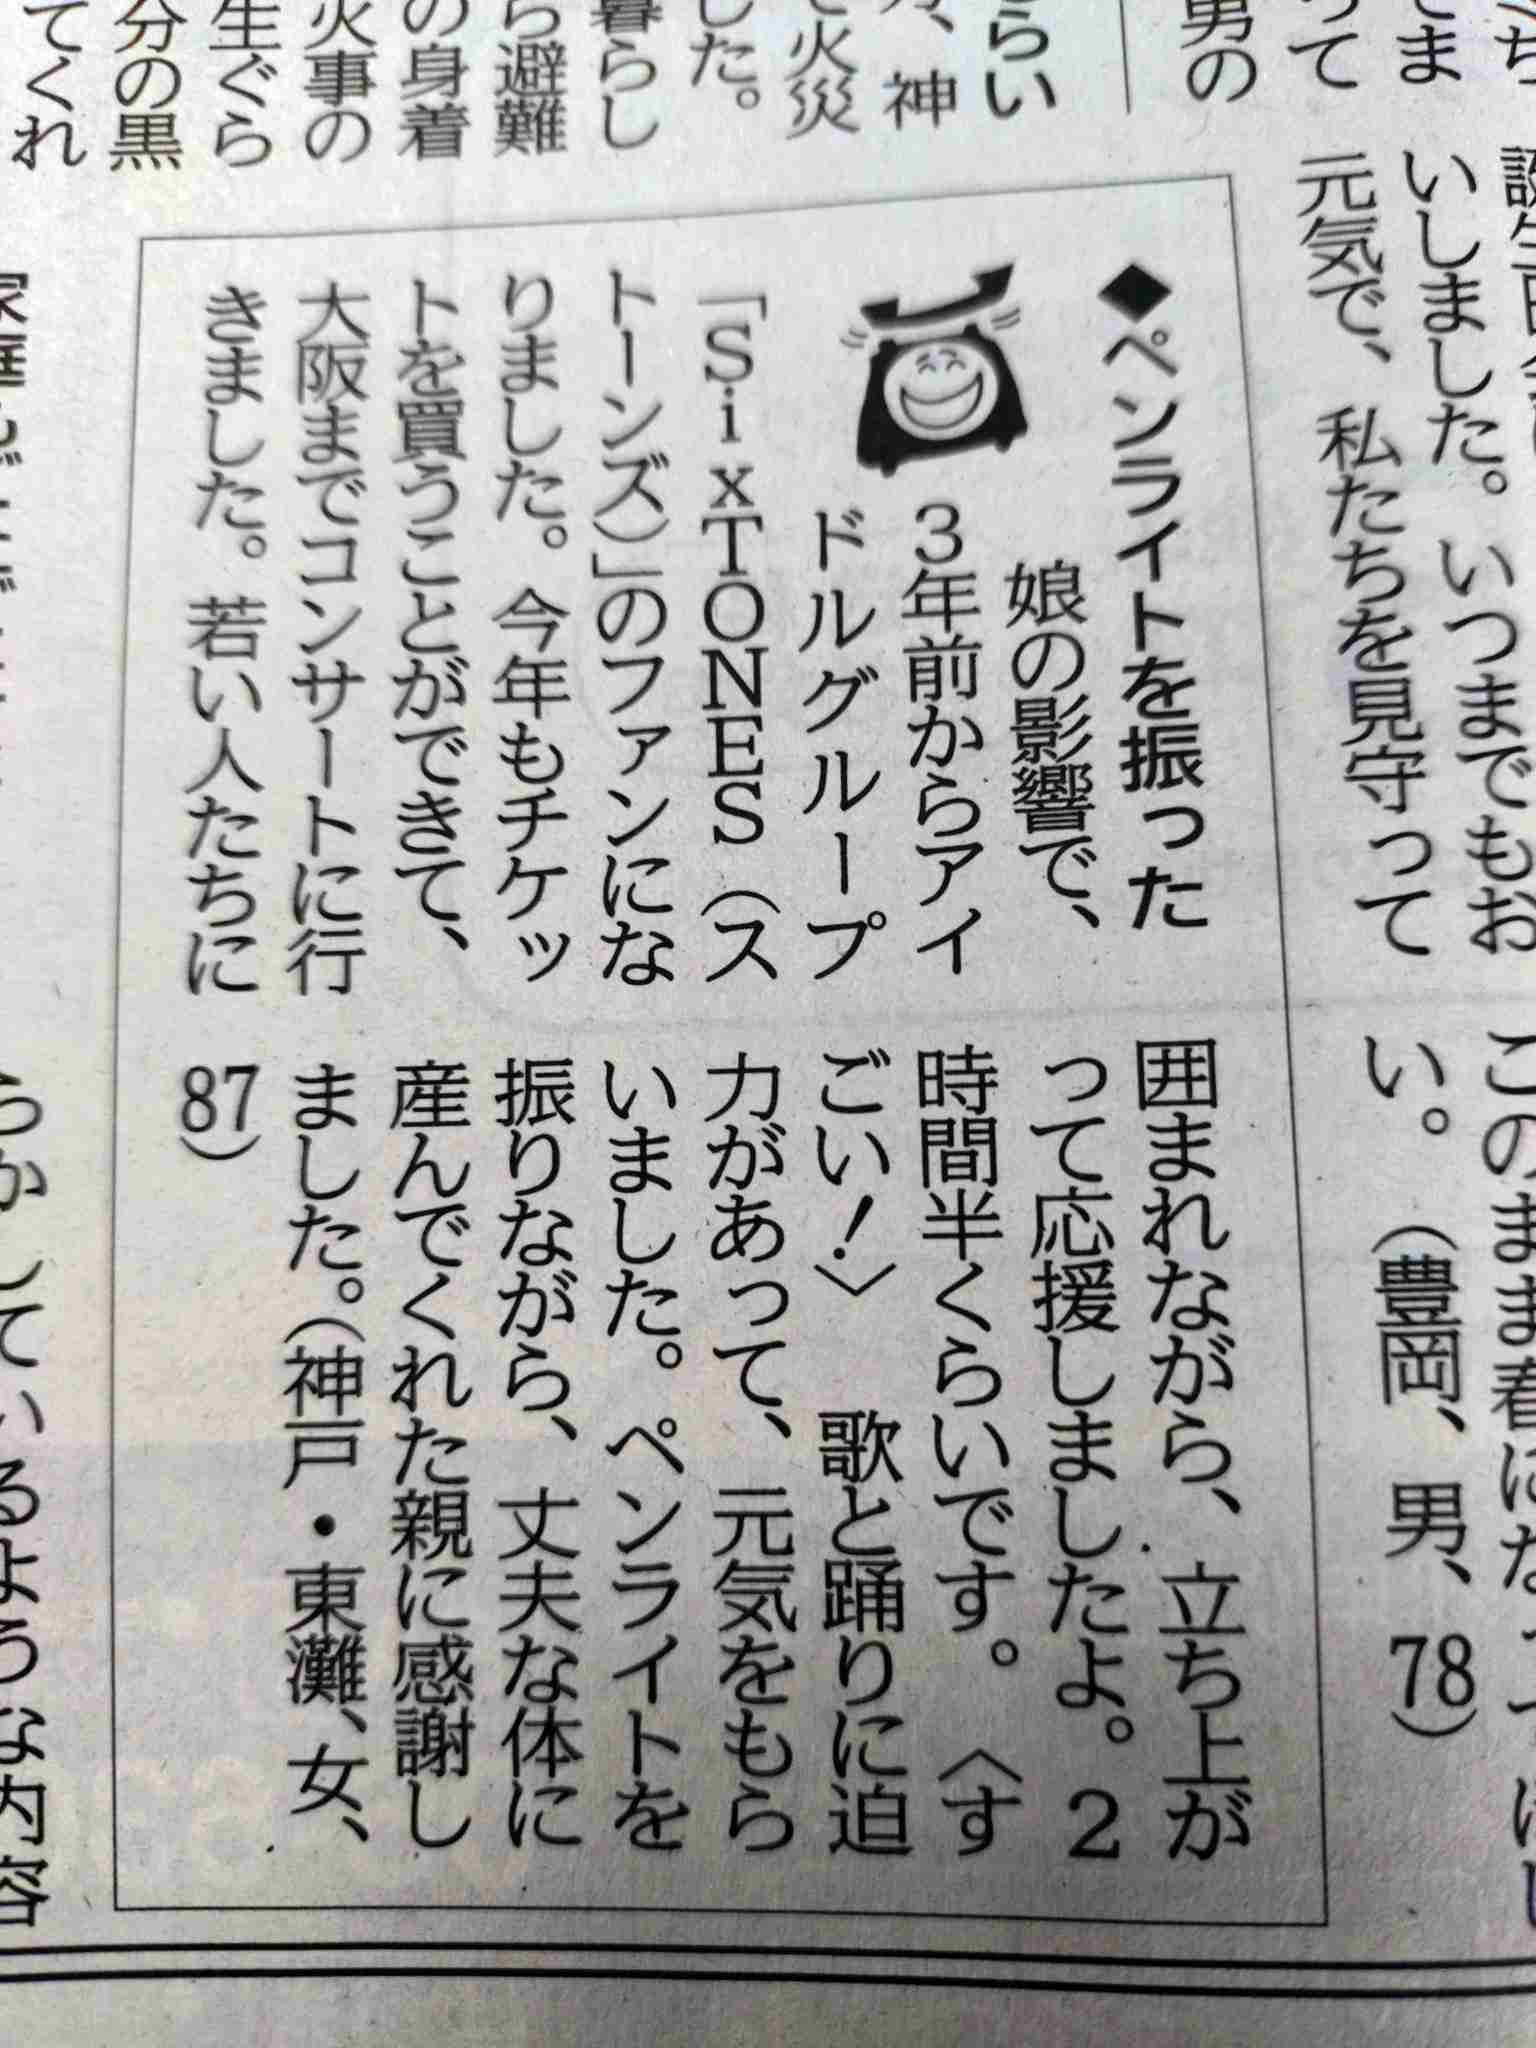 らい
、神
て火災
した。
暮らし
ら避難
の身着
火事の
生ぐら
分の黒
てくれ
てま
って
男の
いしました。いつまでもお
元気で、私たちを見守って
い。（豊岡、男、78）
◆ペンライトを振った
娘の影響で、
3年前からアイ
ドルグループ
「SixTONES（ス
トーンズ）」のファンにな
りました。今年もチケッ
トを買うことができて、
大阪までコンサートに行
きました。若い人たちに
囲まれながら、立ち上が
って応援しましたよ。2
時間半くらいです。〈す
ごい！〉　歌と踊りに迫
力があって、元気をもら
いました。ペンライトを
振りながら、丈夫な体に
産んでくれた親に感謝し
ました。（神戸・東灘、女、
87）
しているような内容